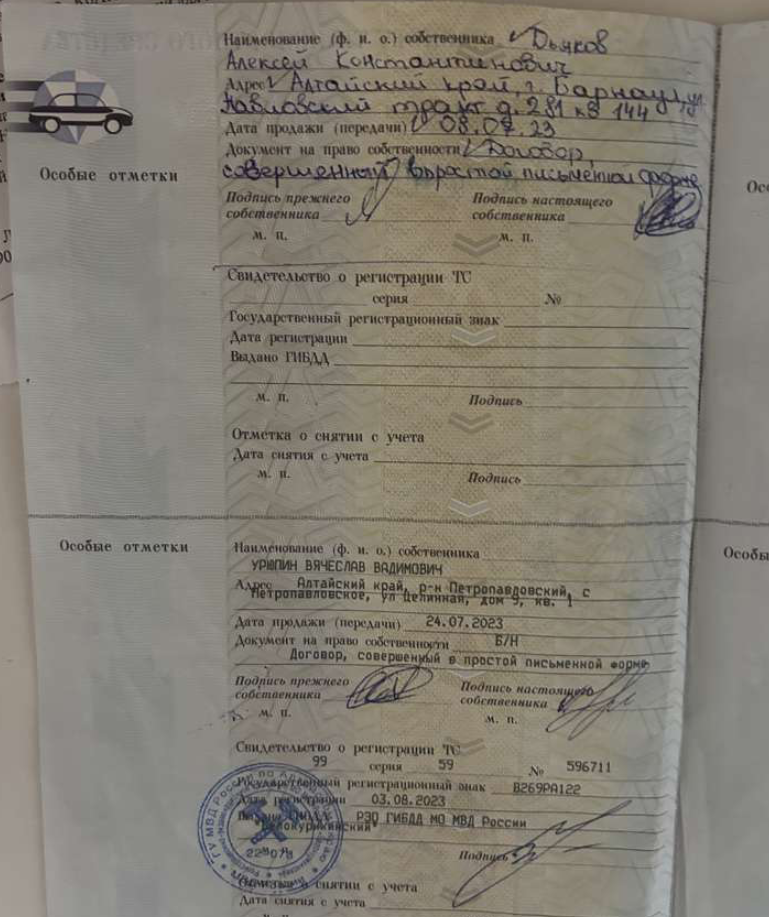 Наименование (ф. и. о.) собственника Дьяков
Алексей Константинович
Адрес Алтайский край, г. Барнаул, ул
Павловский тракт д. 281 кв 144
Дата продажи (передачи) 08.07.23
Документ на право собственности Договор,
совершенный в простой письменной форме
Особые отметки
Подпись прежнего собственника
Подпись настоящего собственника
м. п.
м. п.
Свидетельство о регистрации ТС
серия №
Государственный регистрационный знак
Дата регистрации
Выдано ГИБДД
м. п. Подпись
Отметка о снятии с учета
Дата снятия с учета
м. п. Подпись
Особые отметки
Наименование (ф. и. о.) собственника
УРЮПИН ВЯЧЕСЛАВ ВАДИМОВИЧ
Адрес Алтайский край, р-н Петропавловский, с
Петропавловское, ул Целинная, дом 9, кв. 1
Дата продажи (передачи) 24.07.2023
Документ на право собственности Б/Н
Договор, совершенный в простой письменной форме
Подпись прежнего собственника
Подпись настоящего собственника
м. п.
м. п.
Свидетельство о регистрации ТС
99 серия 59 № 596711
Государственный регистрационный знак В269РА122
Дата регистрации 03.08.2023
Выдано ГИБДД РЭО ГИБДД МО МВД России
"Белокурихинский"
м. п.
Подпись
Отметка о снятии с учета
Дата снятия с учета